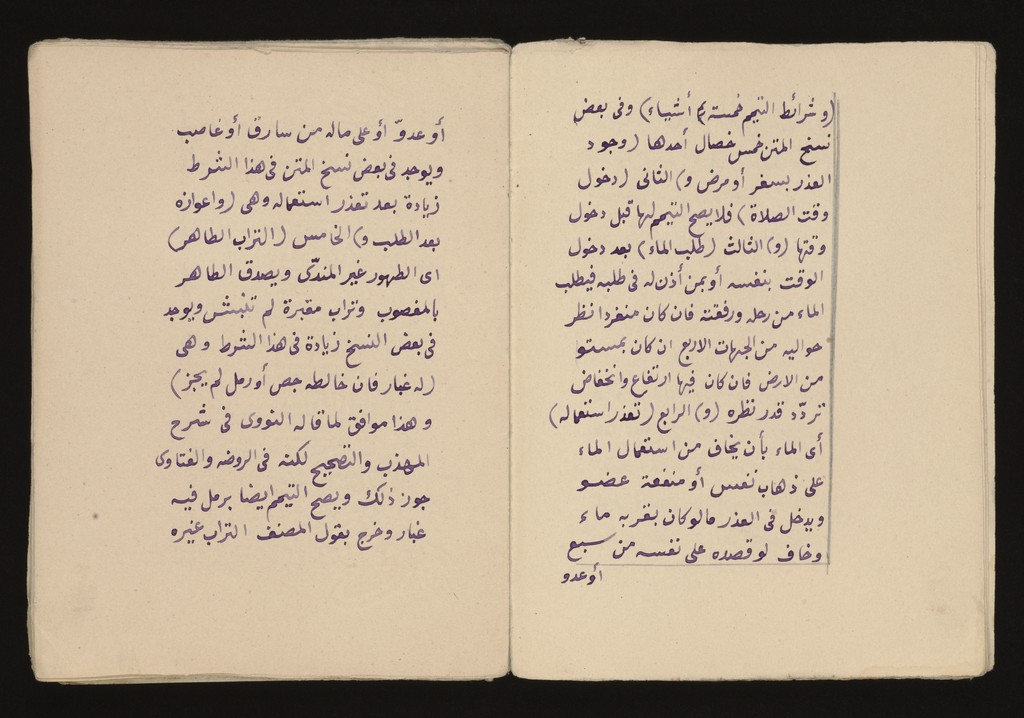 (وشرائط التيمم خمسة أشياء) وفى بعض
نسخ المتن خمس خصال أحدها (وجود
العذر بسفر أو مرض و) الثانى (دخول
وقت الصلاة) فلا يصح التيمم لها قبل دخول
وقتها (و) الثالث (طلب الماء) بعد دخول
الوقت بنفسه أو بمن أذن له فى طلبه فيطلب
الماء من رحله ورفقته فان كان منفردا نظر
حواليه من الجهات الاربع ان كان بمستو
من الارض فان كان فيها ارتفاع وانخفاض
تردّد قدر نظره (و) الرابع (تعذر استعماله)
أى الماء بأن يخاف من استعمال الماء
على ذهاب نفس أو منفعة عضو
ويدخل فى العذر مالو كان بقربه ماء
وخاف لو قصده على نفسه من سبع
أو عدو
أو عدوّ أو على ماله من سارق أو غاصب
ويوجد فى بعض نسخ المتن فى هذا الشرط
زيادة بعد تعذر استعماله وهى (واعوازه
بعد الطلب و) الخامس (التراب الطاهر)
اى الطهور غير المندّى ويصدق الطاهر
بالمغصوب وتراب مقبرة لم تنبش ويوجد
فى بعض النسخ زيادة فى هذا الشرط وهى
(له غبار فان خالطه جص أو رمل لم يجز)
وهذا موافق لما قاله النووى فى شرح
المهذب والتصحيح لكنه فى الروضه والفتاوى
جوز ذلك ويصح التيمم ايضا برمل فيه
غبار وخرج بقول المصنف التراب غيره